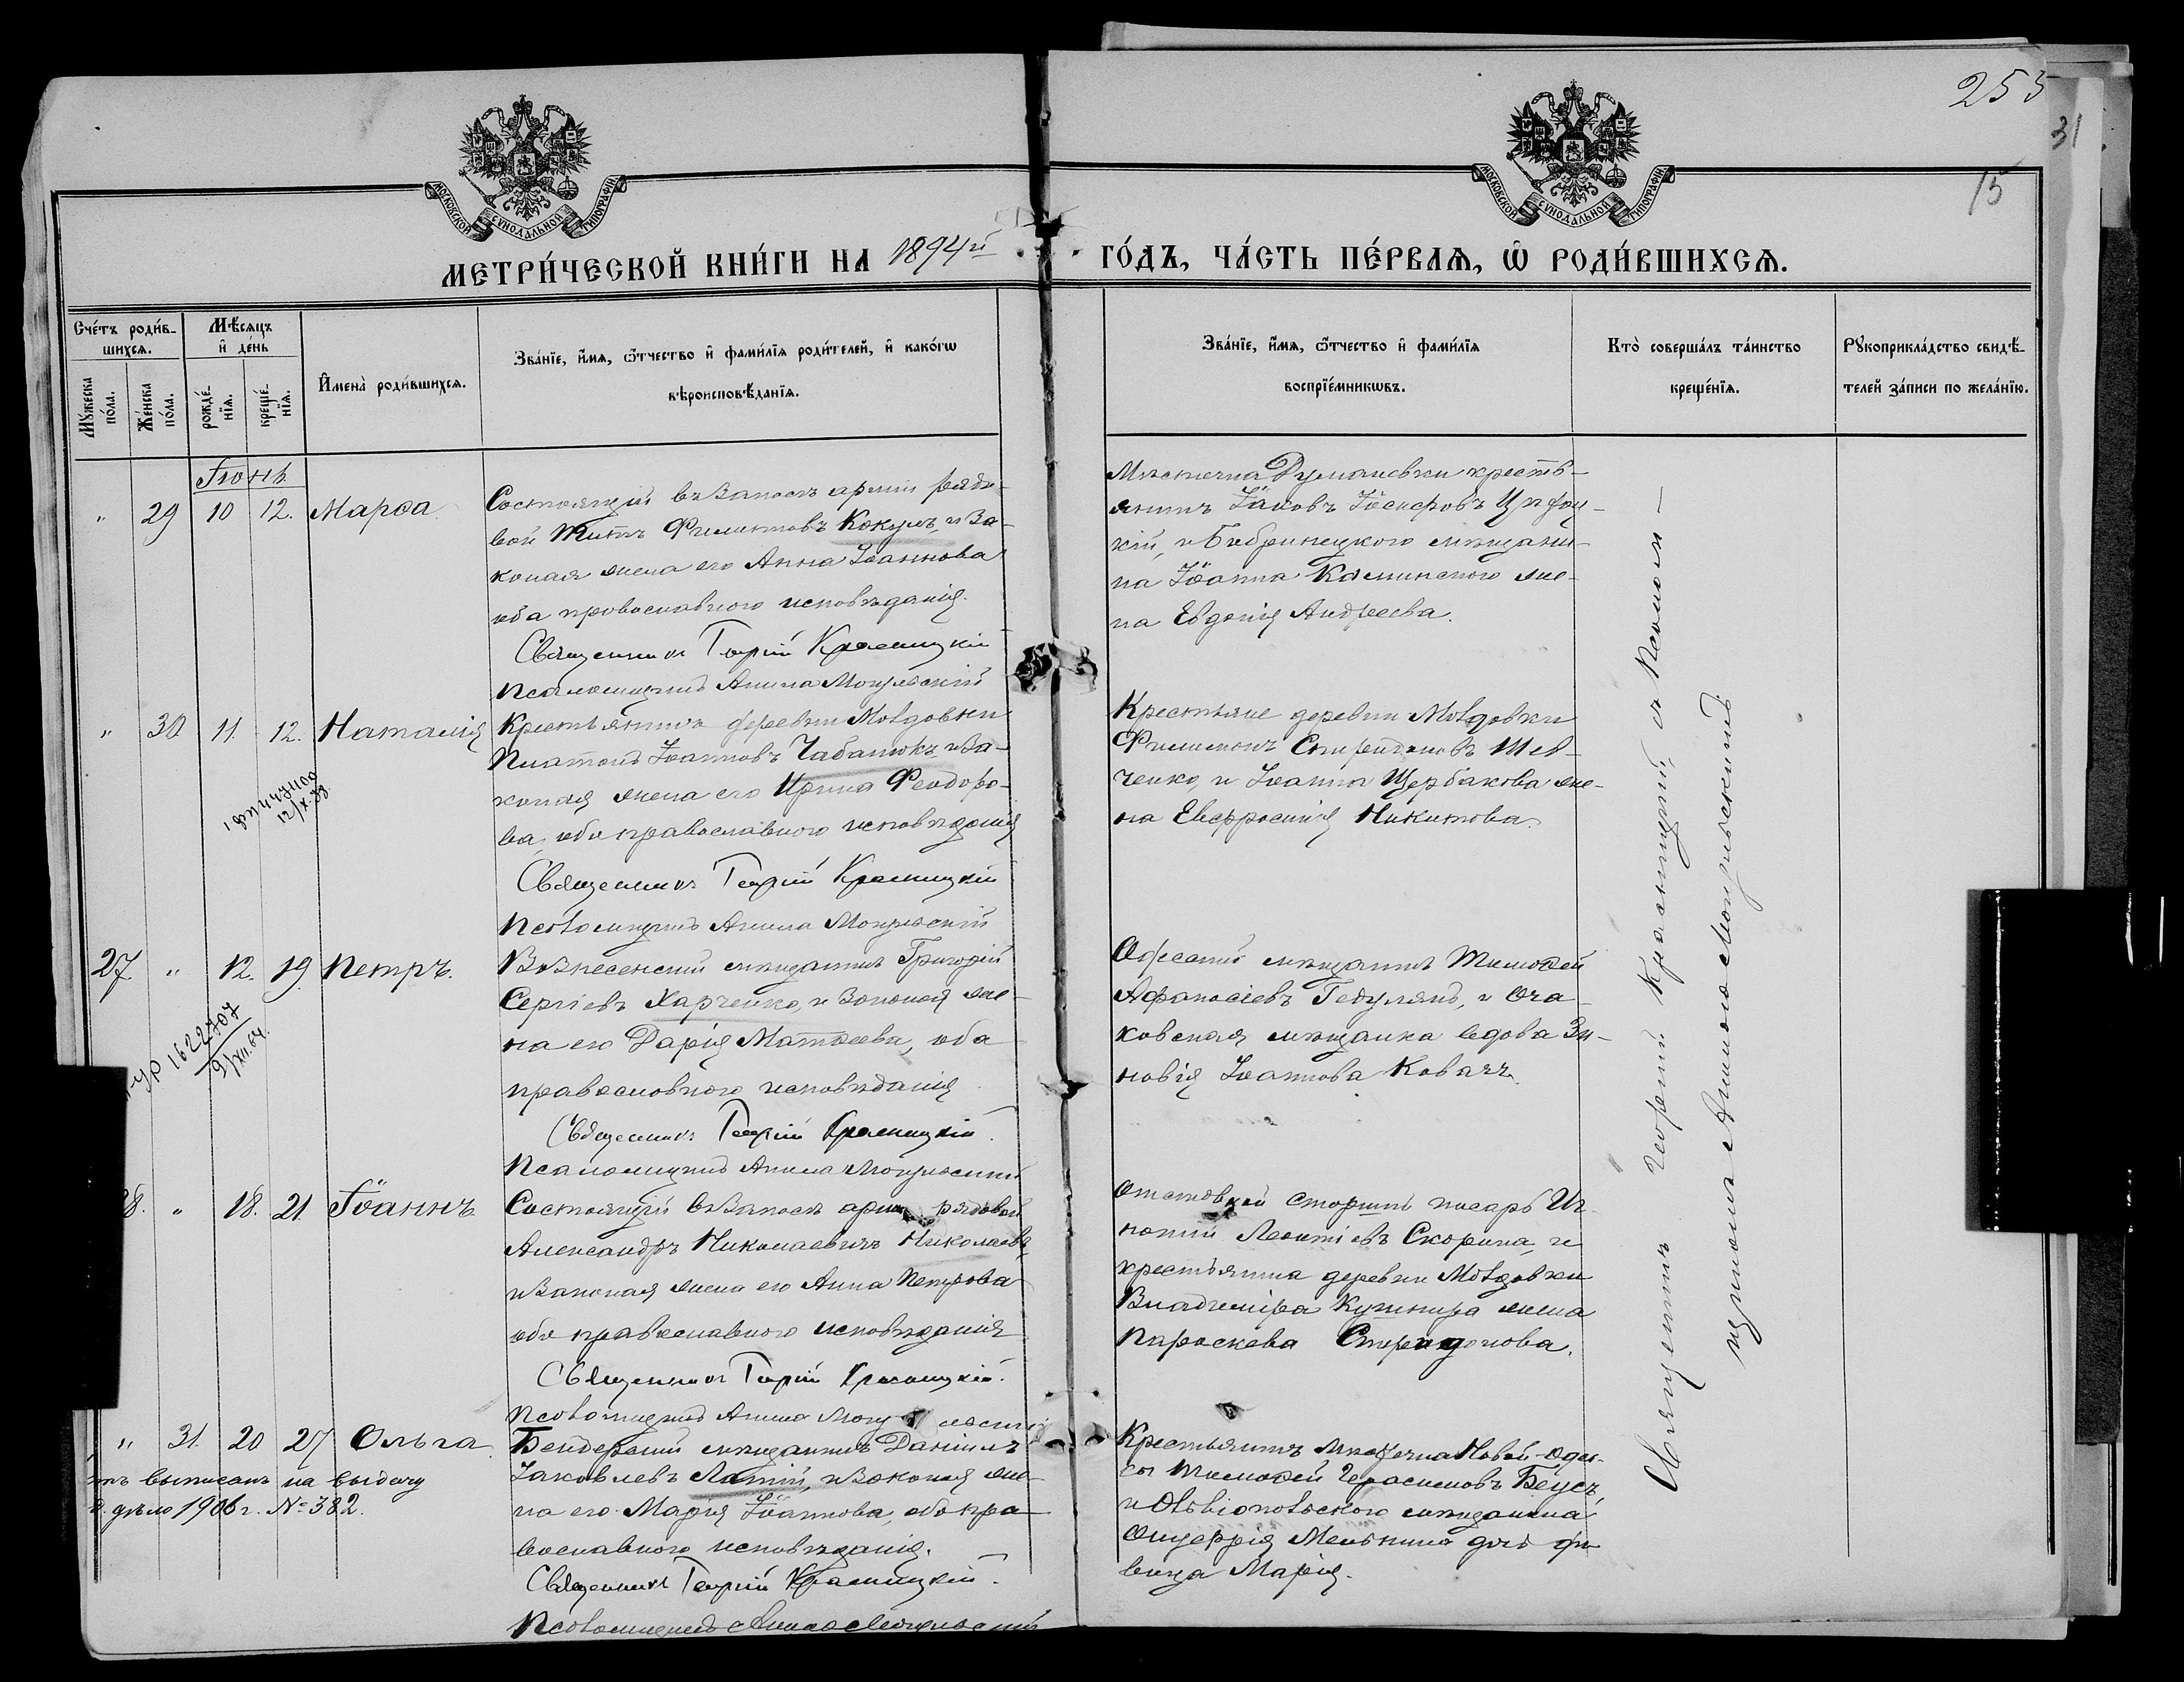 255
31
15
МОСКОВСКОЙ СѴНОДАЛЬНОЙ ТИПОГРАФІИ
МОСКОВСКОЙ СѴНОДАЛЬНОЙ ТИПОГРАФІИ
МЕТРИ́ЧЕСКОЙ КНИ́ГИ НА 1894й ГО́ДЪ, ЧА́СТЬ ПЕ́РВАѦ, Ѡ҆ РОДИ́ВШИХСѦ.
Сче́тъ роди́в-
шихсѧ.
Мꙋ́жеска по́ла.
Же́нска по́ла.
Мѣ́сѧцъ
и҆ де́нь
рожде́-
нїѧ.
креще́-
нїѧ.
И҆мена̀ роди́вшихсѧ.
Зва́нїе, и҆́мѧ, ѻ҆́тчество и҆ фами́лїѧ роди́телей, и҆ како́гѡ
вѣроисповѣ́данїѧ.
Зва́нїе, и҆́мѧ, ѻ҆́тчество и҆ фами́лїѧ
воспрїе́мникѡвъ.
Кто̀ соверша́лъ та́инство
креще́нїѧ.
Рꙋкоприкла́дство свидѣ́-
телей за́писи по жела́нїю.
Іюнь
" 29 10 12. Марѳа
Состоящій въ запасѣ арміи рядо-
вой Титъ Филитовъ Кокулъ, и за-
конная жена его Анна Іоаннова
оба православного исповѣданія.
Священникъ Георгій Красницкій
Псаломщикъ Акила Могульскій
Мѣстечка Думаневки кресть-
янинъ Іаковъ Іосифовъ
кій, и Бобринецкого мѣщани-
на Іоанна Каминского же-
на Евдокія Андреева.
" 30 11. 12. Наталія
Крестьянинъ деревни Молдовки
Платонъ Іоанновъ Чабанюкъ и за-
конная жена его Ирина Феодоро-
ва, оба православного исповѣданія
Священникъ Георгій Красницкій
Псаломщикъ Акила Могульскій
Крестьяне деревни Молдовки
Филимонъ Спиридоновъ Шев-
ченко, и Іоанна Щербакова же-
на Евфросинія Никитова.
447400
12/X.38.
27. " 12. 19. Петръ.
Вознесенскій мѣщанинъ Григорій
Сергіевъ Харченко, и законная же-
на его Дарія Матѳеева, оба
православного исповѣданія
Священникъ Георгій Красницкій.
Псаломщикъ Акила Могульскій
Одесскій мѣщанинъ Тимоѳей
Афанасіевъ Гедулянъ, и Оча-
ковская мѣщанка вдова Зи-
новія Іоаннова Ковачъ.
УР 1622707
2/XII.64.
28. " 18. 21. Іоаннъ
Состоящій въ запасѣ арміи рядовой
Александръ Николаевичъ Николаевъ,
и законная жена его Анна Петрова
оба православного исповѣданія
Священникъ Георгій Красницкій.
Псаломщикъ Акила Могульскій
Отставной старшій писарь Иг-
натій Леонтіевъ Скорина, и
крестьянина деревни Молдовки
Владиміра Кушнира жена
Параскева Спиридонова.
" 31. 20 27 Ольга
Бендерскій мѣщанинъ Даніилъ
Іаковлевъ Латій, и законная же-
на его Марія Іоаннова, оба пра-
вославного исповѣданія.
Священникъ Георгій Красницкій.
Псаломщикъ Акила Могульскій
Крестьянинъ мѣстечка Новой-Одес-
сы Тимоѳей Герасимовъ Беусъ,
и Ольвіопольского мѣщанина
Онуфрія Мельника дочь дѣ-
вица Марія.
выписанъ на выдачу
дѣло 1906 г. № 382.
Священникъ Георгій Красницкій, съ Псалом-
щикомъ Акилою Могульскимъ